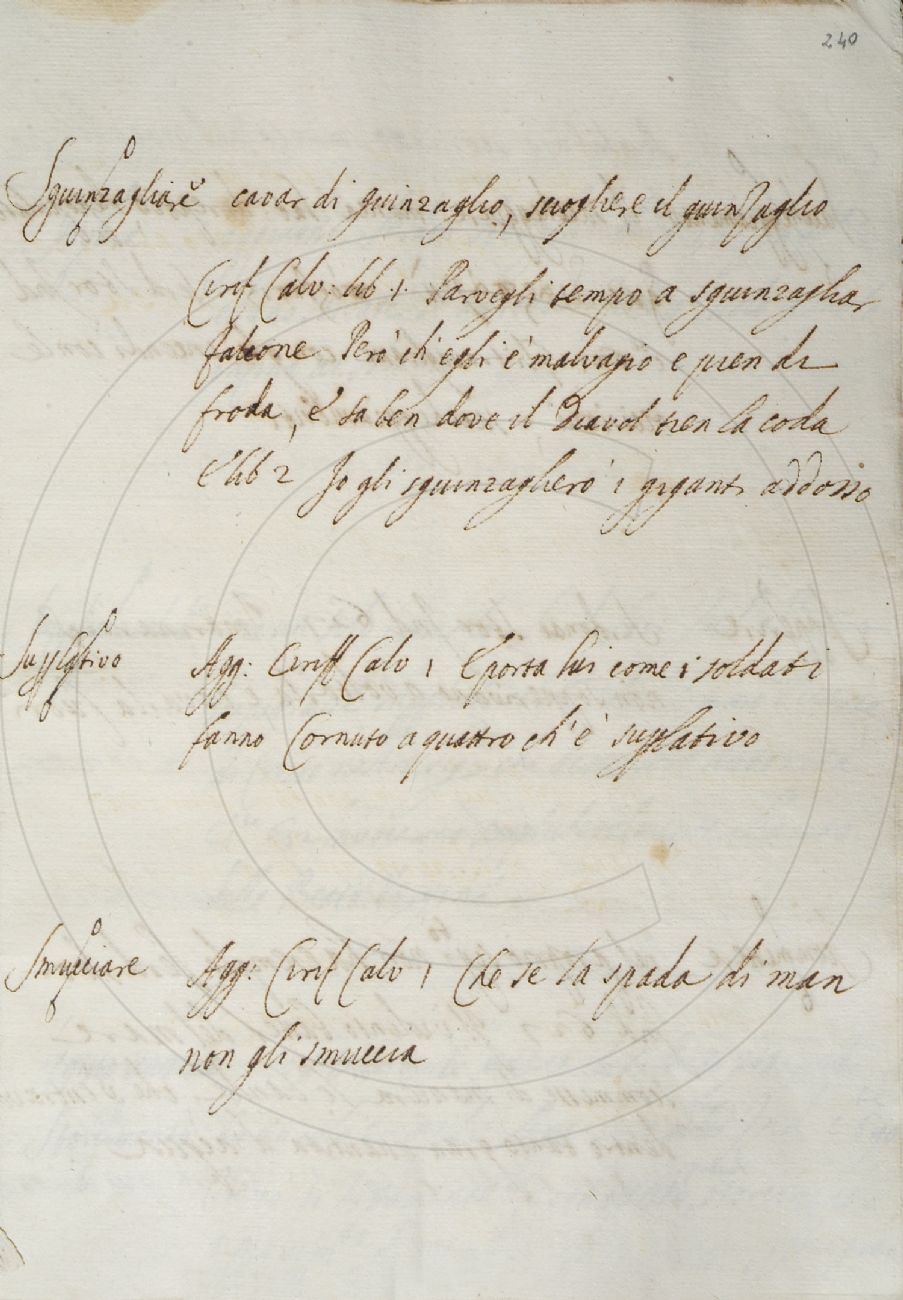 240
Sguinzagliare cavar di guinzaglio, sciogliere il guinzaglio
Cirif Calv: lib 1. Parvegli tempo a sguinzagliar
falcone Però ch'egli è malvagio e pien di
froda, e sa ben dove il Diavol tien la coda
E lib 2 Io gli sguinzaglierò i giganti addosso
Suplativo Agg: Ciriff Calv 1 E porta lui come i soldati
fanno Cornuto a quattro ch'è suplativo
Smucciare Agg: Cirif Calv 1 Che se la spada di man
non gli smuccia